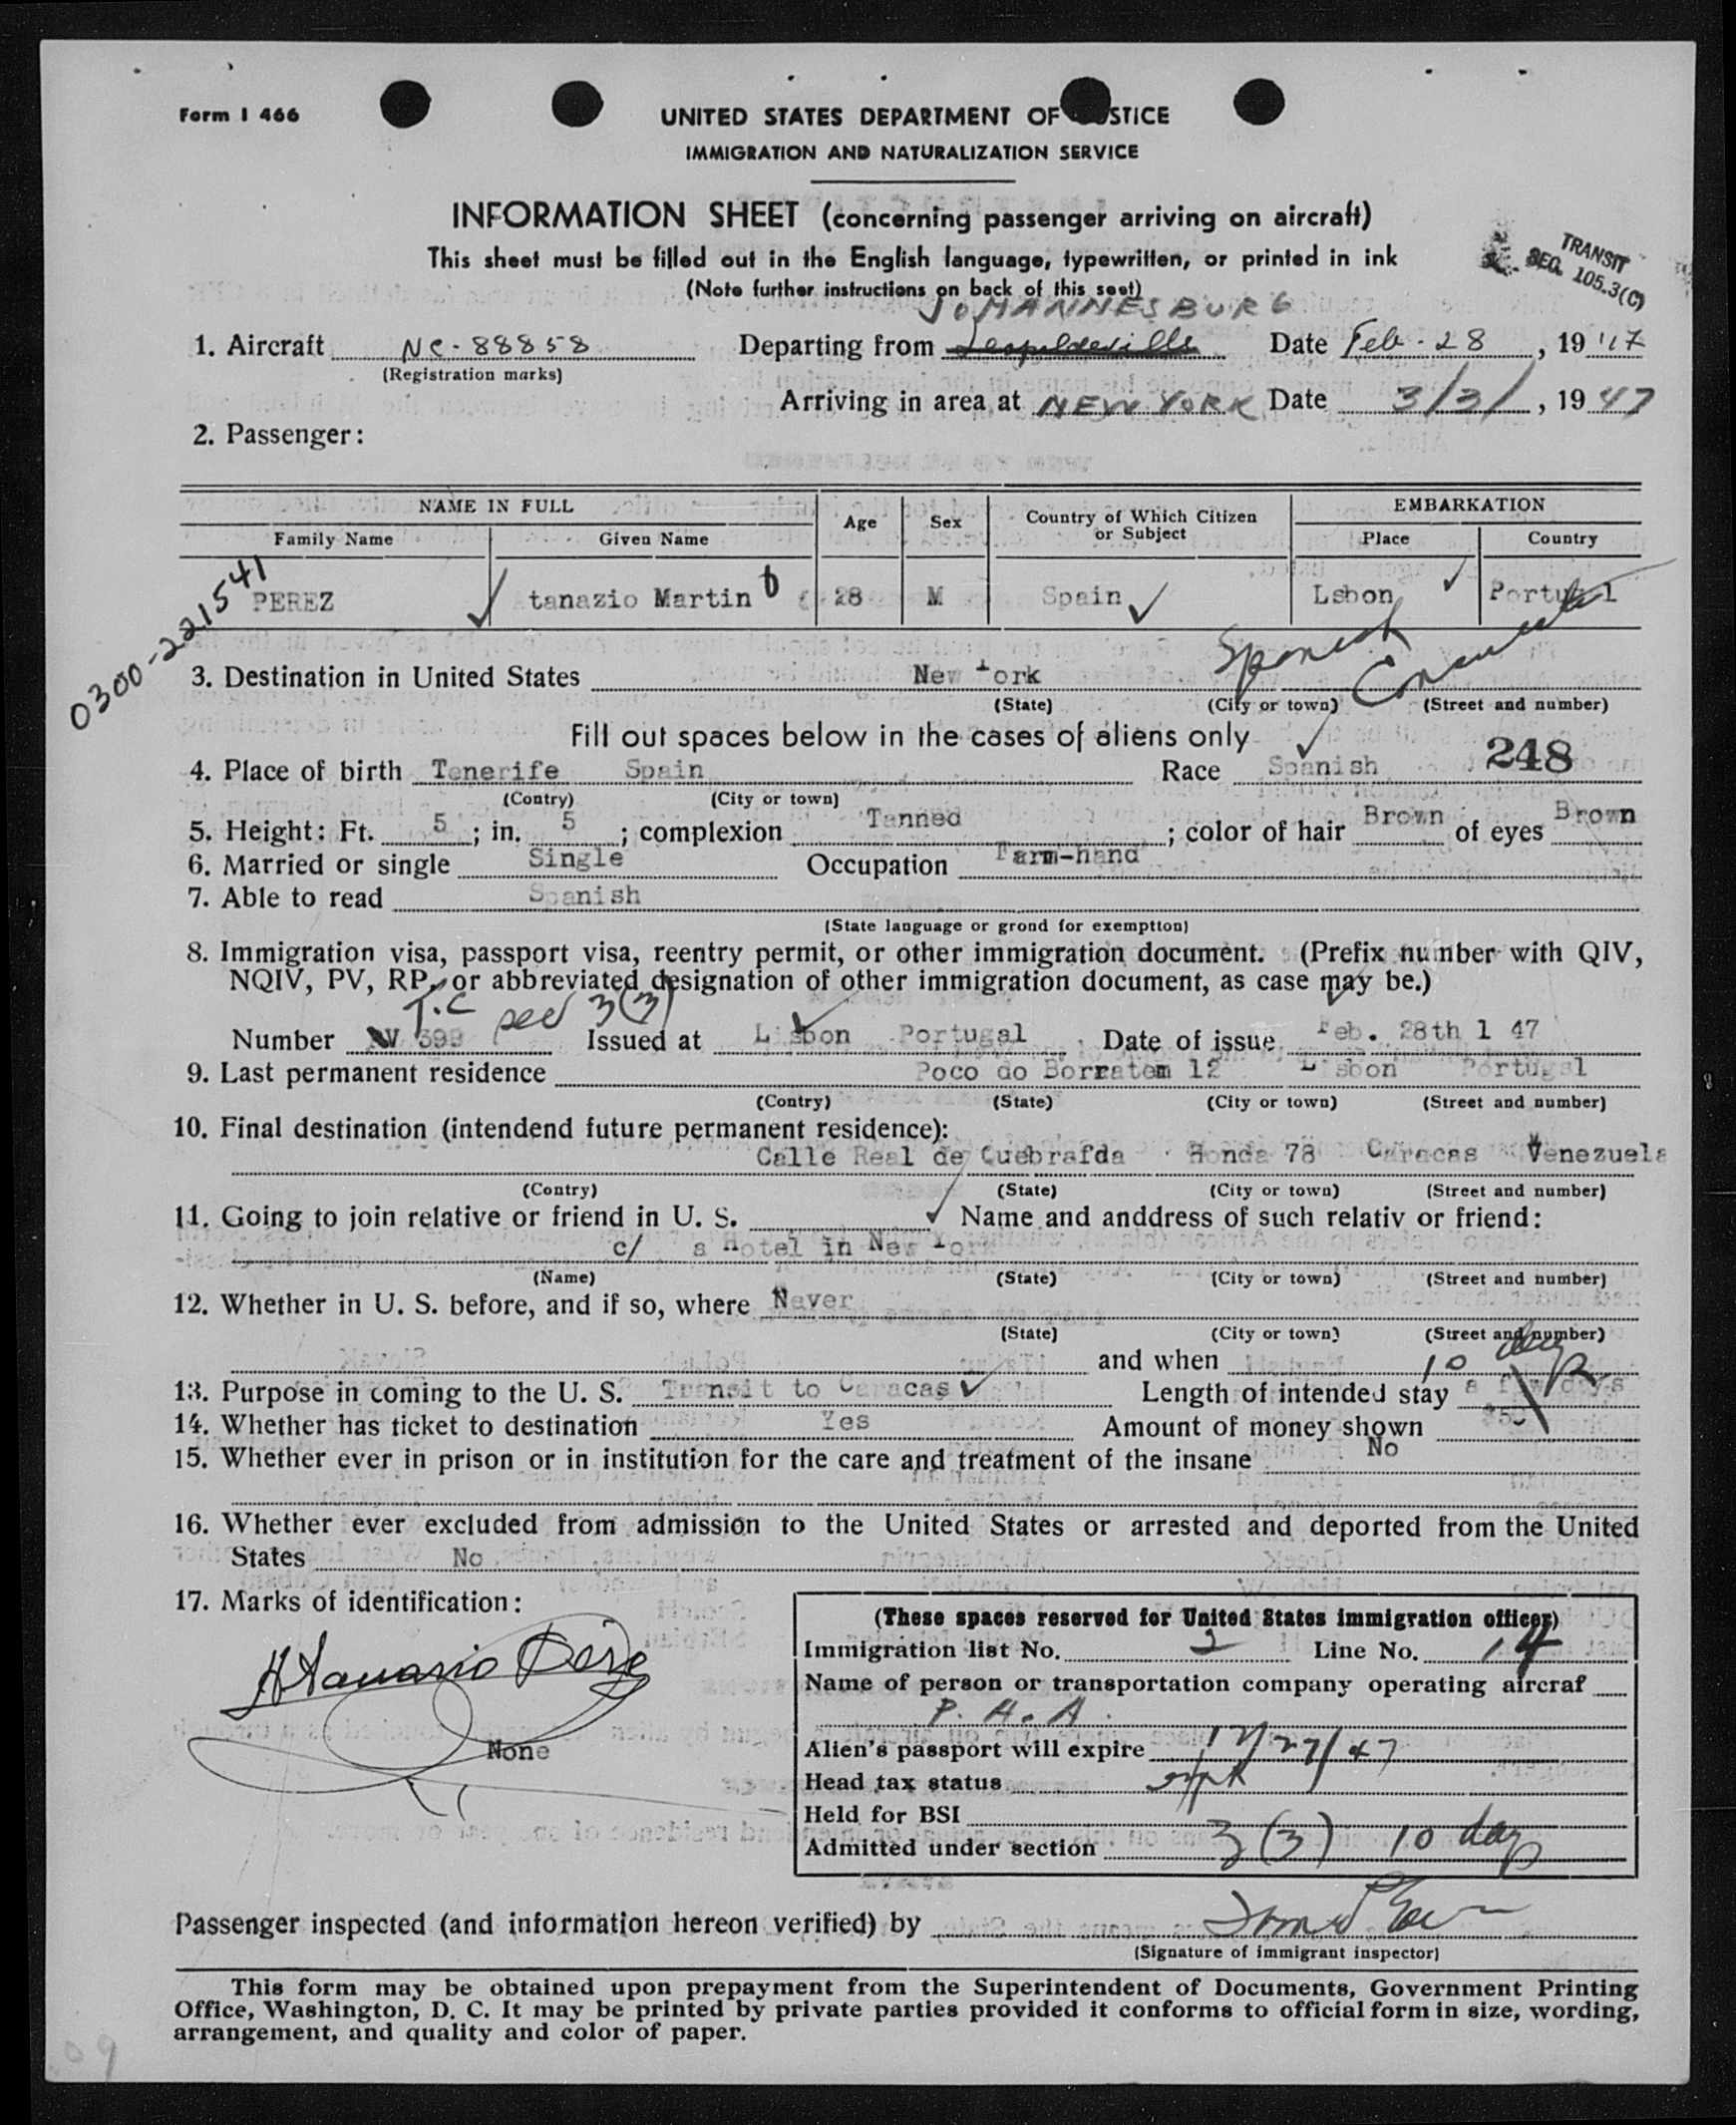 Form I 466
UNITED STATES DEPARTMENT OF STICE
IMMIGRATION AND NATURALIZATION SERVICE
INFORMATION SHEET (concerning passenger arriving on aircraft)
This sheet must be filled out in the English language, typewritten, or printed in ink
(Note further instructions on back of this seet)
TRANSIT
SEC. 105.3(C)
JOHANNESBURG
1. Aircraft NC-88858 Departing from Leopoldeville Date Feb-28, 1947
(Registration marks)
Arriving in area at NEW YORK Date 3/3/, 1947
2. Passenger:
NAME IN FULL Age Sex Country of Which Citizen or Subject EMBARKATION
Family Name Given Name Place Country
0300-221541
PEREZ tanazio Martin 28 M Spain Lsbon Portugal
Spanish Consulate
3. Destination in United States New York
(State) (City or town) (Street and number)
Fill out spaces below in the cases of aliens only
248
4. Place of birth Tenerife Spain Race Spanish
(Contry) (City or town)
5. Height: Ft. 5; in. 5; complexion Tanned; color of hair Brown of eyes Brown
6. Married or single Single Occupation Farm-hand
7. Able to read Spanish
(State language or grond for exemption)
8. Immigration visa, passport visa, reentry permit, or other immigration document. (Prefix number with QIV,
NQIV, PV, RP, or abbreviated designation of other immigration document, as case may be.)
T.C sec 3(3)
Number 399 Issued at Lisbon Portugal Date of issue Feb. 28th 1 47
9. Last permanent residence Poco do Borratem 12 Lisbon Portugal
(Contry) (State) (City or town) (Street and number)
10. Final destination (intendend future permanent residence):
Calle Real de Quebrafda Honda 78 Caracas Venezuela
(Contry) (State) (City or town) (Street and number)
11. Going to join relative or friend in U. S. Name and anddress of such relativ or friend:
c/ a Hotel in New York
(Name) (State) (City or town) (Street and number)
12. Whether in U. S. before, and if so, where Never
(State) (City or town) (Street and number)
and when
10 days
13. Purpose in coming to the U. S. Transit to Caracas Length of intended stay a few days
14. Whether has ticket to destination Yes Amount of money shown
15. Whether ever in prison or in institution for the care and treatment of the insane No
16. Whether ever excluded from admission to the United States or arrested and deported from the United
States No
17. Marks of identification:
Atanasio Pérez
None
(These spaces reserved for United States immigration officer)
Immigration list No. 2 Line No. 14
Name of person or transportation company operating aircraf
P. A. A.
Alien's passport will expire 12/27/47
Head tax status
Held for BSI
Admitted under section 3(3) 10 days
Passenger inspected (and information hereon verified) by
(Signature of immigrant inspector)
This form may be obtained upon prepayment from the Superintendent of Documents, Government Printing
Office, Washington, D. C. It may be printed by private parties provided it conforms to official form in size, wording,
arrangement, and quality and color of paper.